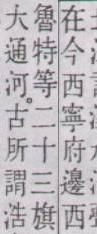 在今西寧府邊西
魯特等二十三旗
大通河。古所謂浩